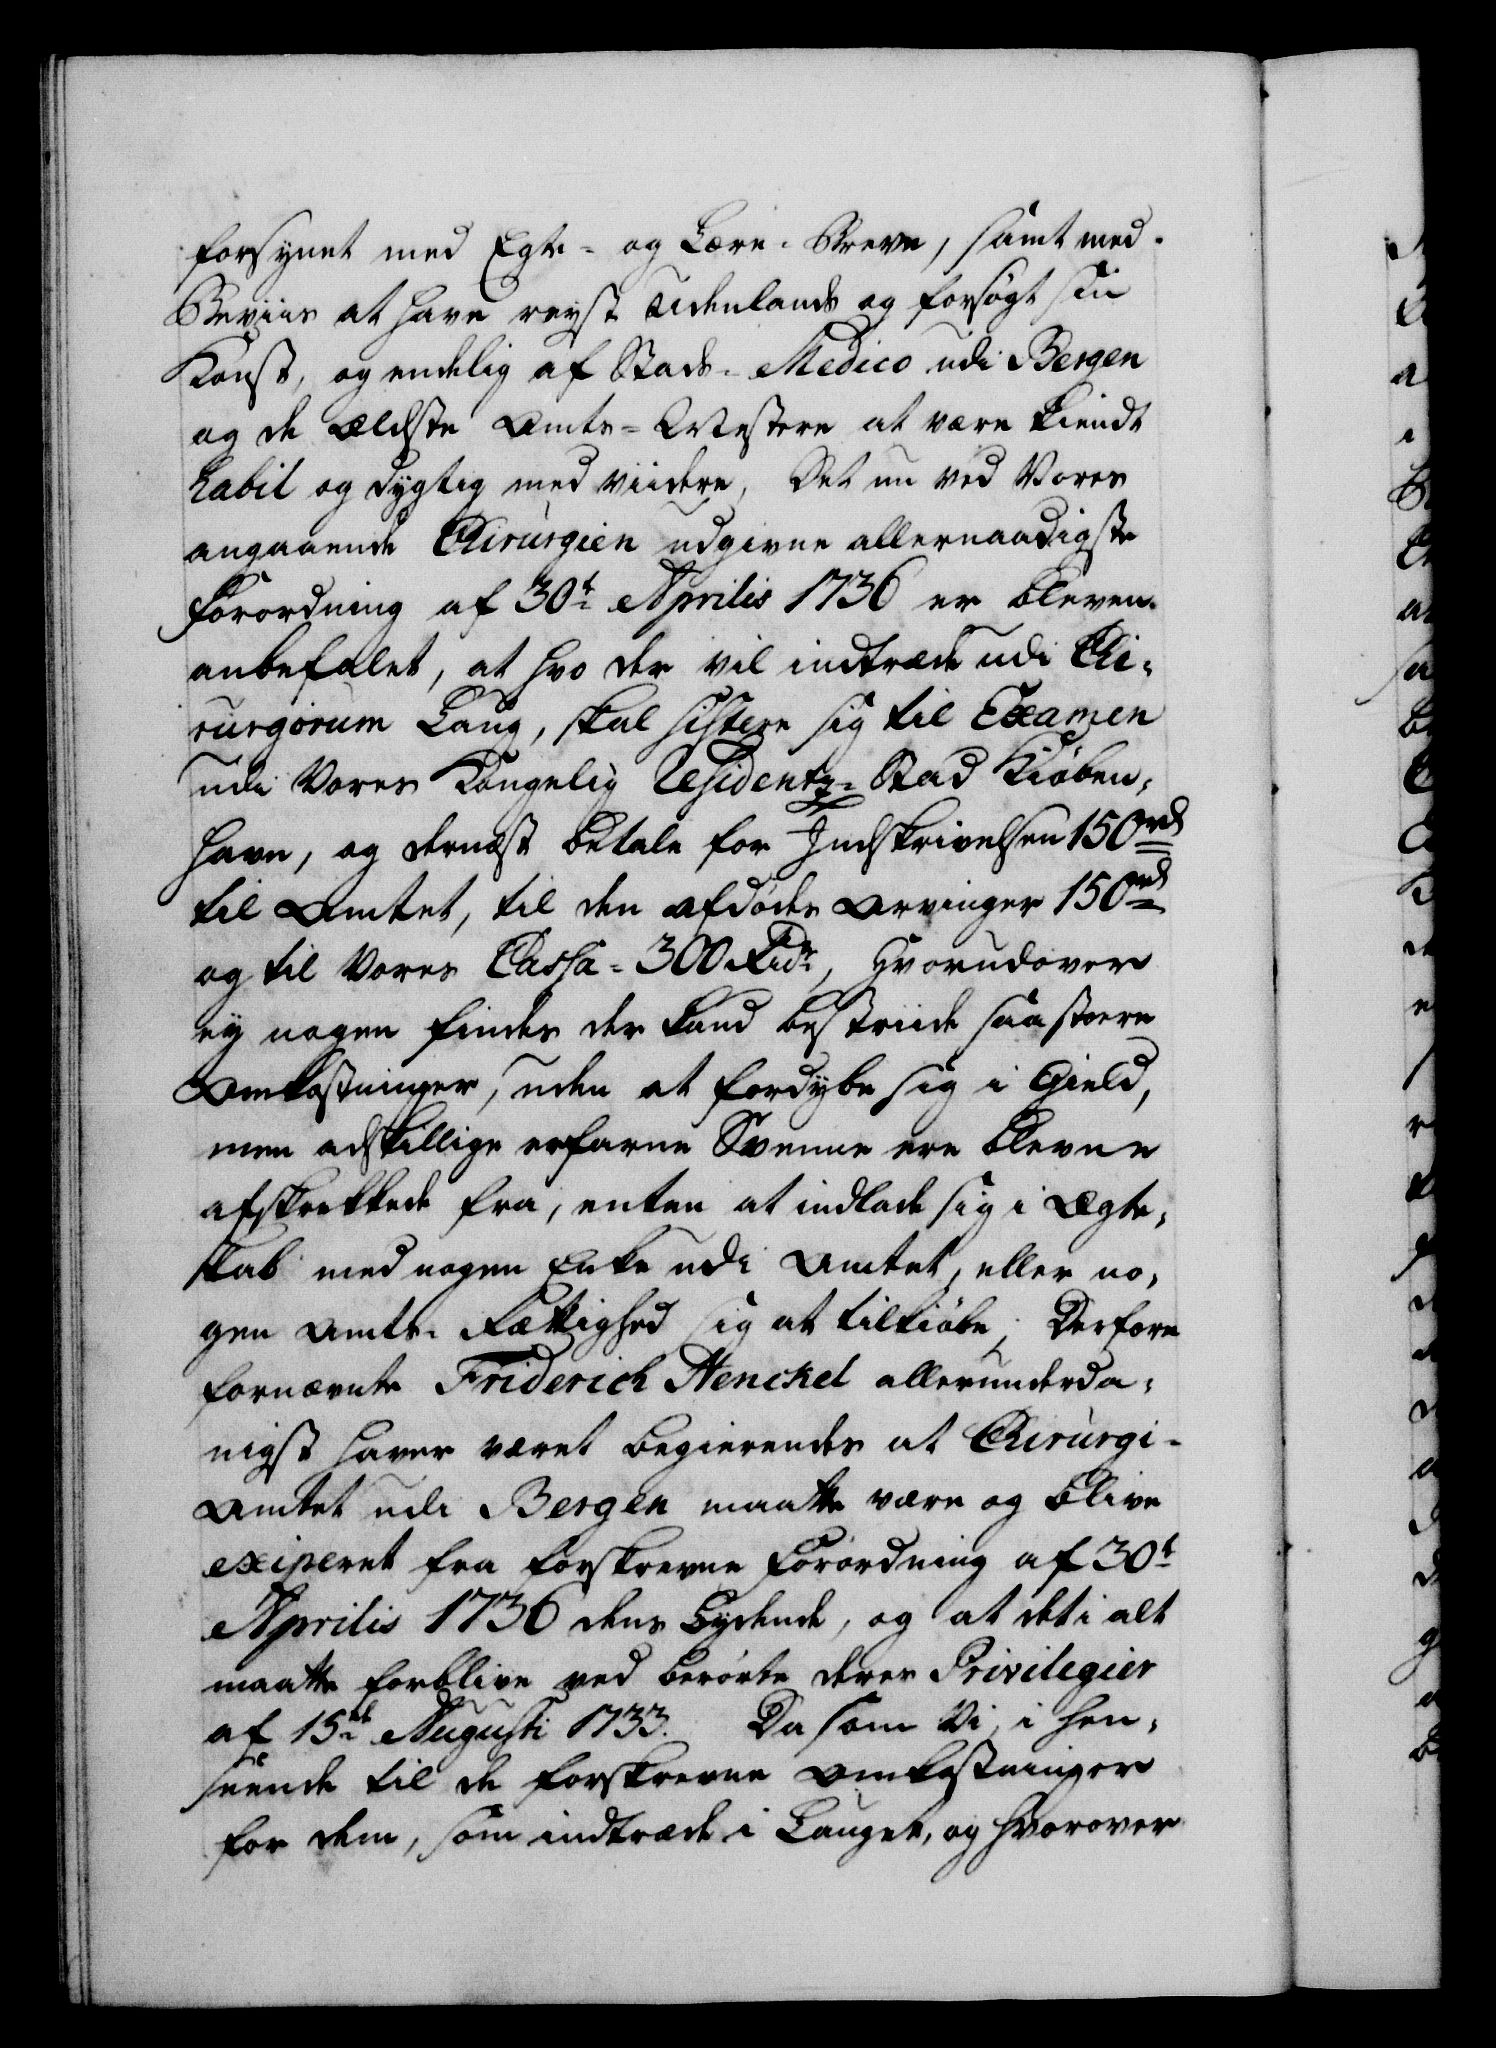 forsynet med Egte- og Lære-Breve, samt med
Beviis at have reyst Udenlands og forsøgt sin
Konst, og endelig af Stads-Medico udi Bergen
og de Ældste Amts-Mestere at være kiendt
habil og dygtig med viidere, Det nu ved Vores
angaaende Chirurgien udgivne allernaadigste
Forordning af 30t Aprilis 1736 er bleven
anbefalet, at hvo der vil indtræde udi Chi-
rurgorum Laug, skal sistere sig til Examen
udi Vores Kongelig Residentz-Stad Kiøben-
havn, og dernæst betale for Indskrivelsen 150 rd
til Amtet, til den afdødes Arvinger 150 rd
og til Vores Cassa-300 Rdr, Hvorudover
ey nogen findes der kand bestriide saa stoere
Omkostninger, uden at fordybe sig i Gield,
men adskillige erfarne Svenne ere blevne
afskrekkede fra, enten at indlade sig i Ægte-
skab med nogen Enke udi Amtet, eller no-
gen Amts-Rettighed sig at tilkiøbe; Derfore
fornævnte Friderich Henckel allerunderda-
nigst haver været begierendes at Chirurgi-
Amtet udi Bergen maatte være og blive
exiperet fra forskrevne Forordning af 30t
Aprilis 1736 dens Lydende, og at det i alt
maatte forblive ved berørte deres Privilegier
af 15de Augusti 1733. Da som Vi, i hen-
seende til de forskrevne Omkostninger
for dem, som indtræde i Lauget, og hvorover